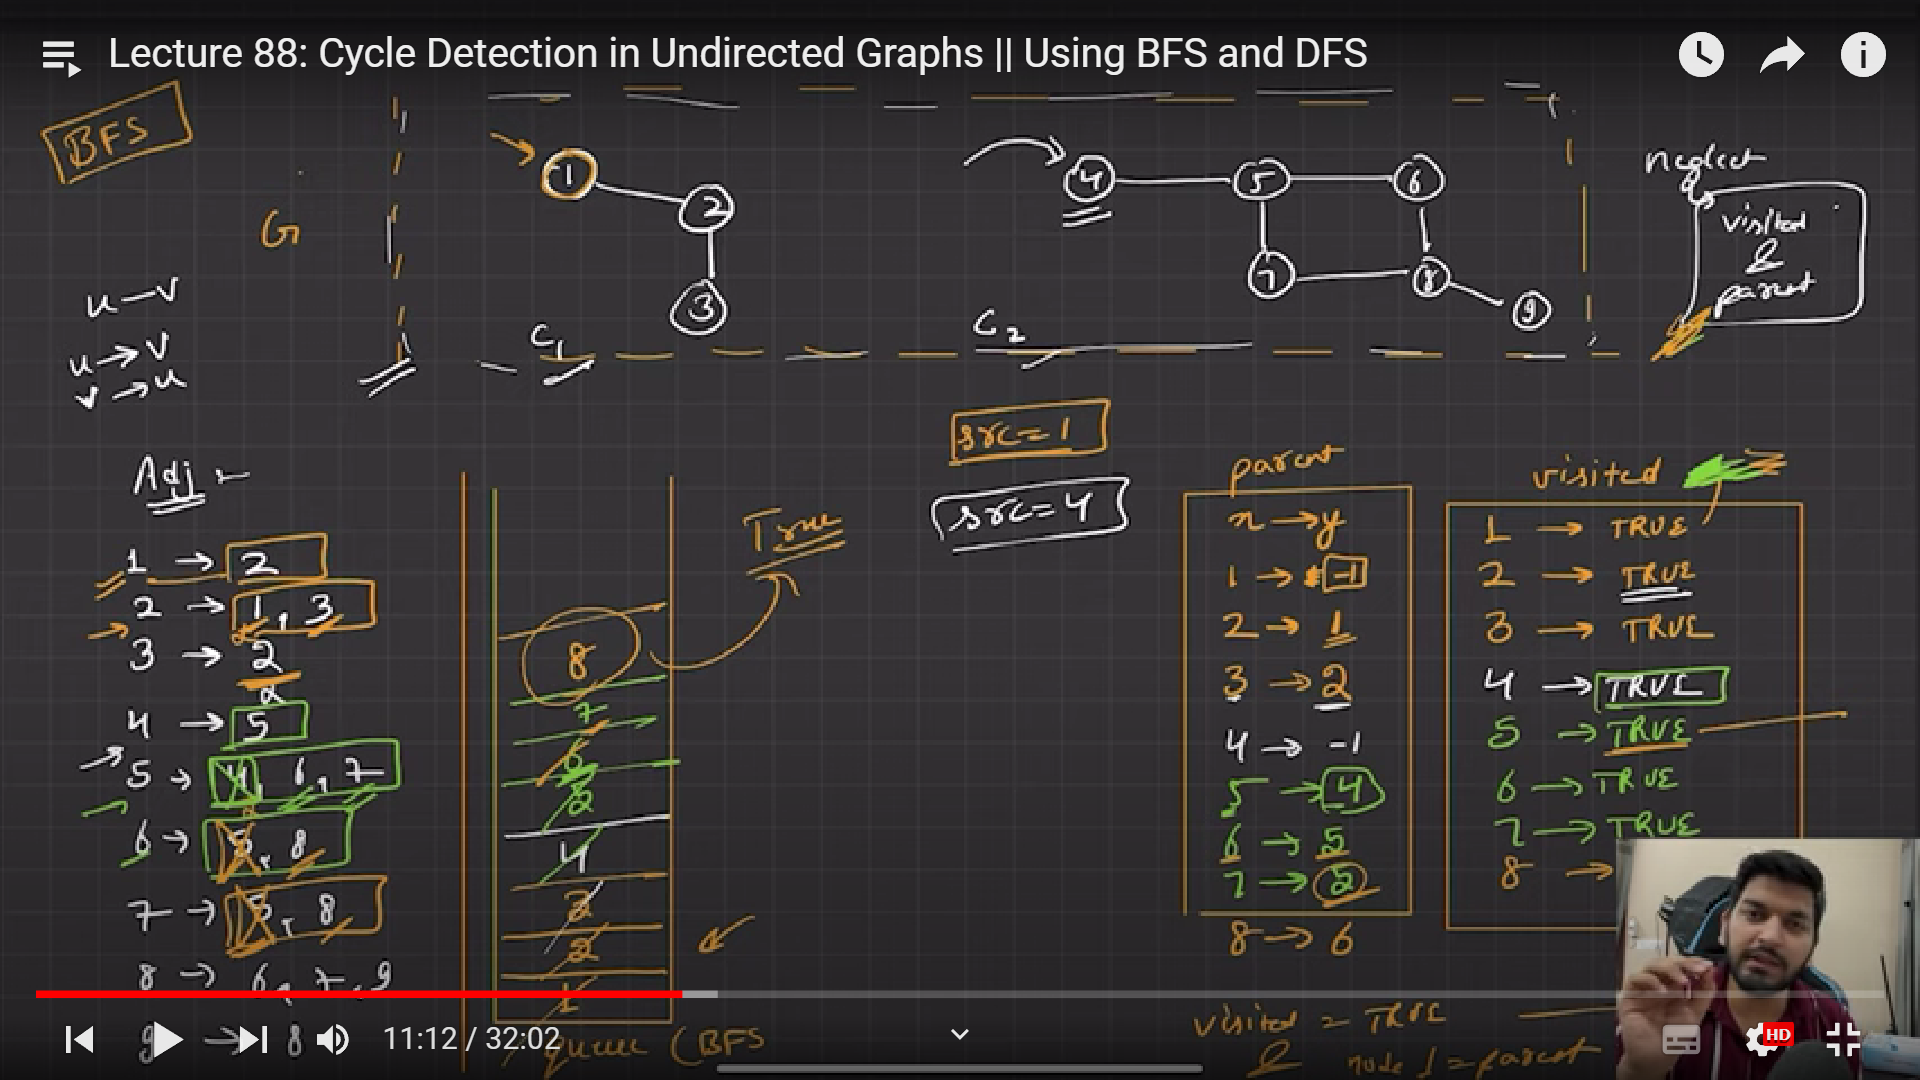 Lecture 88: Cycle Detection in Undirected Graphs || Using BFS and DFS
BFS
G
1
2
3
C1
4
5
6
7
8
9
C2
neglect
visited
&
parent
u—v
u→v
v→u
Adj :-
1 → 2
2 → 1, 3
3 → 2
4 → 5
5 → 4, 6, 7
6 → 5, 8
7 → 5, 8
8 → 6, 7, 9
9 → 8
8
7
6
5
4
3
2
1
queue (BFS
True
src=1
src=4
parent
x → y
1 → -1
2 → 1
3 → 2
4 → -1
5 → 4
6 → 5
7 → 5
8 → 6
visited
1 → TRUE
2 → TRUE
3 → TRUE
4 → TRUE
5 → TRUE
6 → TRUE
7 → TRUE
8 →
visited = TRUE
& node != parent
11:12 / 32:02
HD